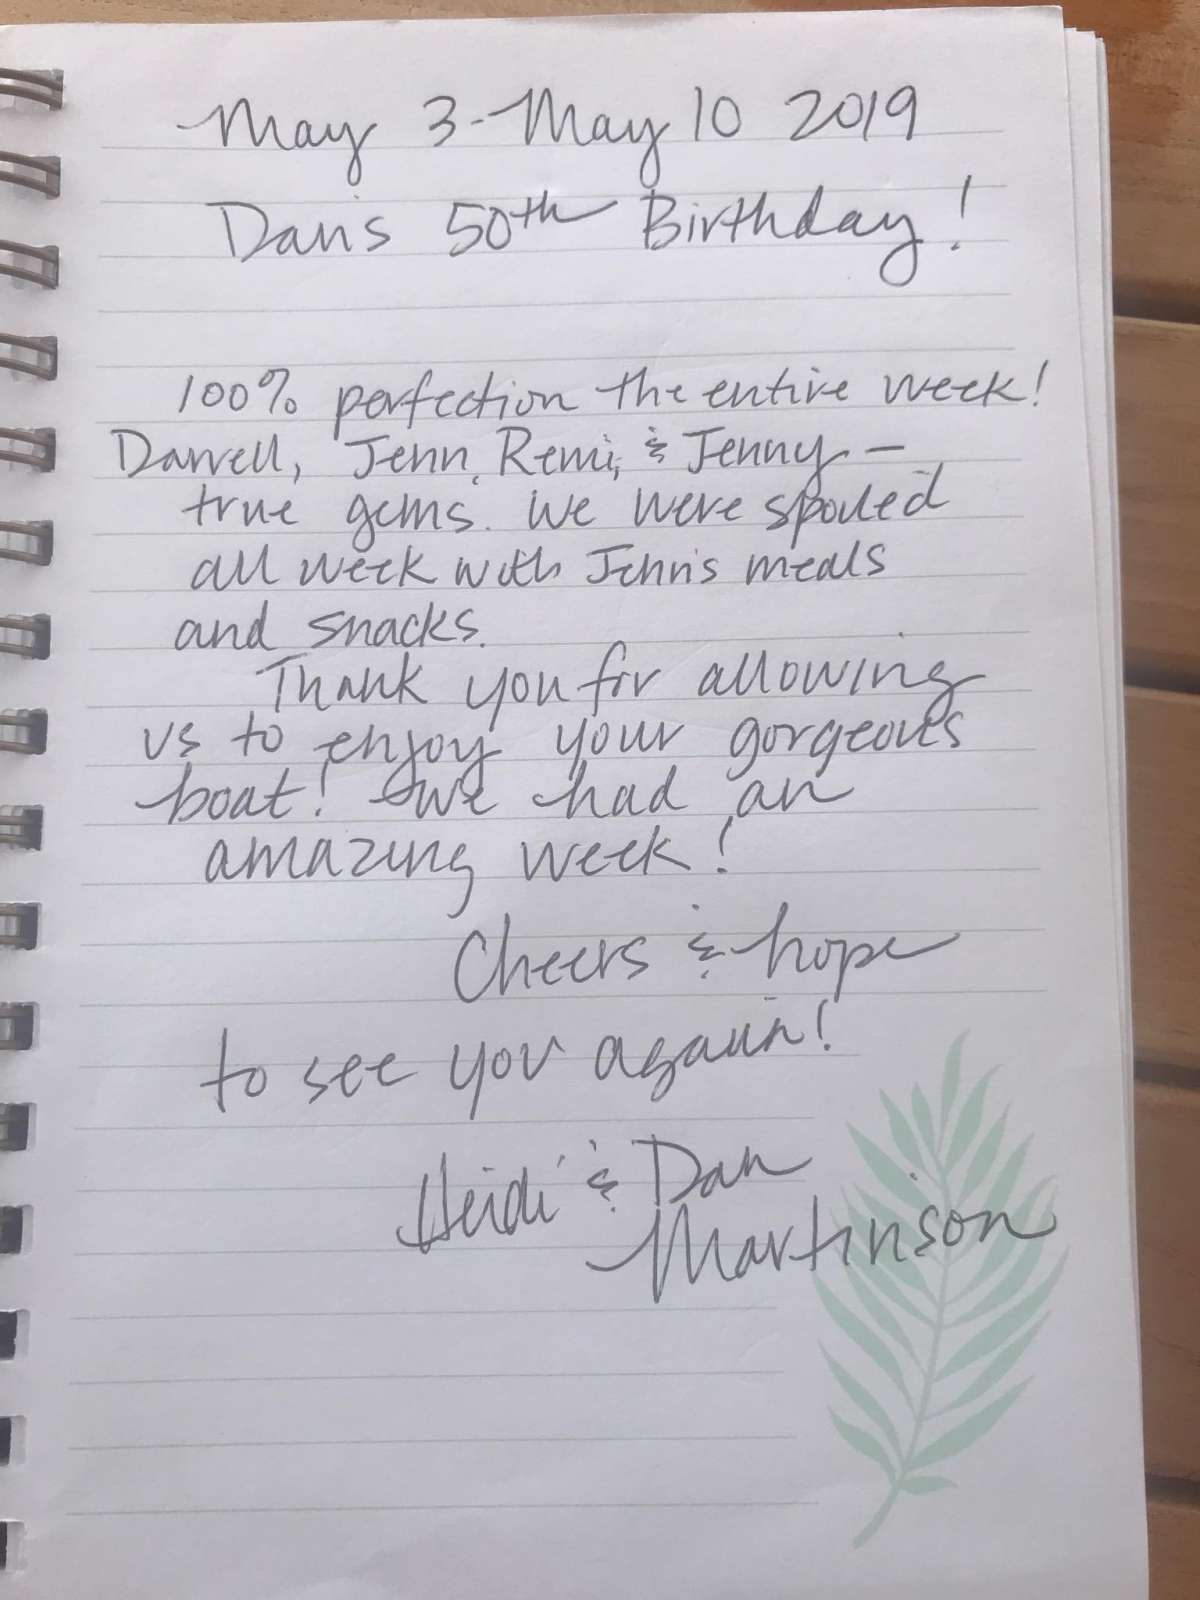 May 3-May 10 2019
Dan's 50th Birthday!
100% perfection the entire week!
Darrell, Jenn, Remi, & Jenny -
true gems. We were spoiled
all week with Jenn's meals
and snacks.
Thank you for allowing
us to enjoy your gorgeous
boat! We had an
amazing week!
Cheers & hope
to see you again!
Heidi & Dan
Martinson